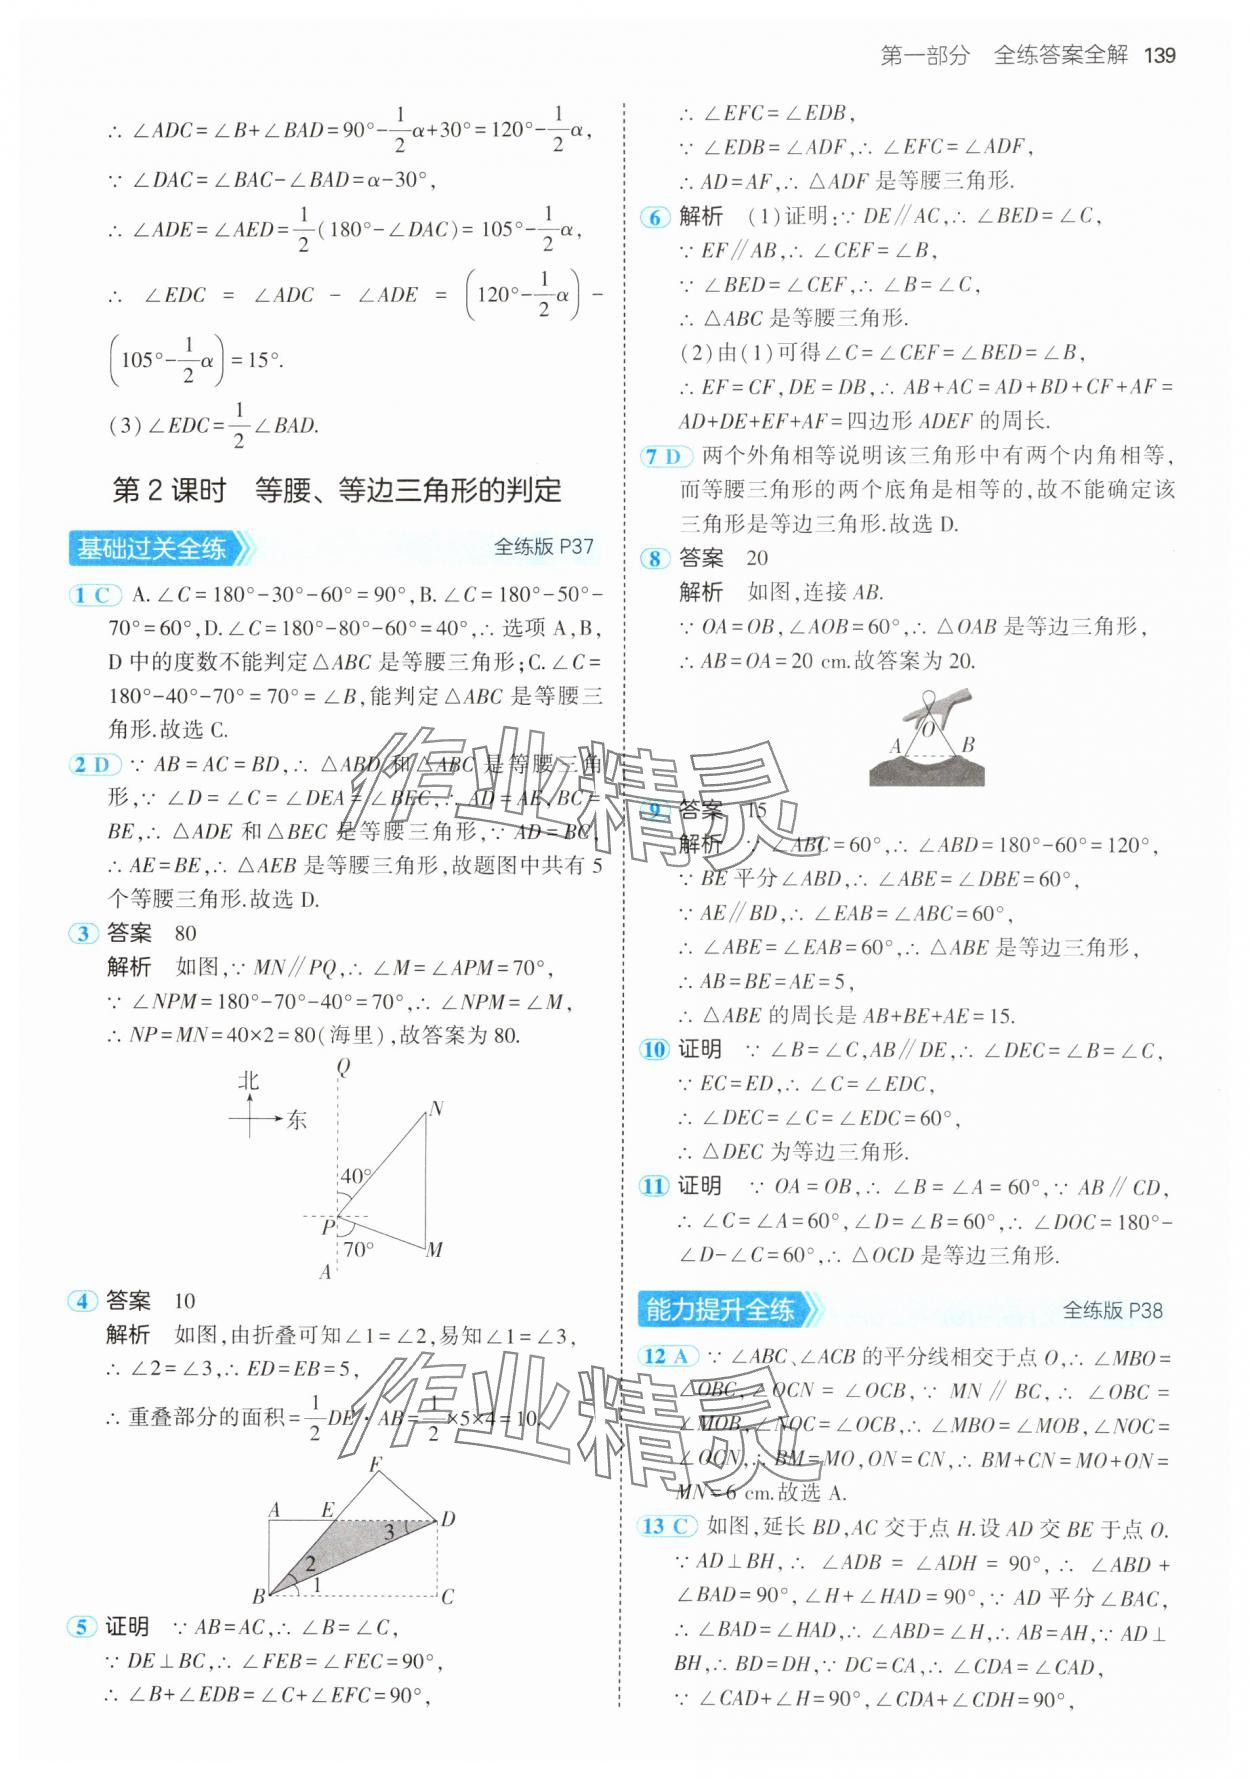 第一部分 全练答案全解 139
∴ ∠ADC=∠B+∠BAD=90°-1/2α+30°=120°-1/2α,
∵ ∠DAC=∠BAC-∠BAD=α-30°,
∴ ∠ADE=∠AED=1/2(180°-∠DAC)=105°-1/2α,
∴ ∠EDC = ∠ADC - ∠ADE = (120°-1/2α) -
(105°-1/2α)=15°.
(3)∠EDC=1/2∠BAD.
第2课时 等腰、等边三角形的判定
基础过关全练 全练版 P37
1 C A.∠C=180°-30°-60°=90°,B.∠C=180°-50°-
70°=60°,D.∠C=180°-80°-60°=40°,∴ 选项 A,B,
D 中的度数不能判定△ABC 是等腰三角形;C.∠C=
180°-40°-70°=70°=∠B,能判定△ABC 是等腰三
角形.故选 C.
2 D ∵ AB=AC=BD,∴ △ABD 和△ABC 是等腰三角
形,∵ ∠D=∠C=∠DEA=∠BEC,∴ AD=AE,BC=
BE,∴ △ADE 和△BEC 是等腰三角形,∵ AD=BC,
∴ AE=BE,∴ △AEB 是等腰三角形,故题图中共有 5
个等腰三角形.故选 D.
3 答案 80
解析 如图,∵ MN∥PQ,∴ ∠M=∠APM=70°,
∵ ∠NPM=180°-70°-40°=70°,∴ ∠NPM=∠M,
∴ NP=MN=40×2=80(海里),故答案为 80.
北
东
Q
N
40°
P
70°
M
A
4 答案 10
解析 如图,由折叠可知∠1=∠2,易知∠1=∠3,
∴ ∠2=∠3,∴ ED=EB=5,
∴ 重叠部分的面积=1/2DE·AB=1/2×5×4=10.
F
A E D
3
2
1
B C
5 证明 ∵ AB=AC,∴ ∠B=∠C,
∵ DE⊥BC,∴ ∠FEB=∠FEC=90°,
∴ ∠B+∠EDB=∠C+∠EFC=90°,
∴ ∠EFC=∠EDB,
∵ ∠EDB=∠ADF,∴ ∠EFC=∠ADF,
∴ AD=AF,∴ △ADF 是等腰三角形.
6 解析 (1)证明:∵ DE∥AC,∴ ∠BED=∠C,
∵ EF∥AB,∴ ∠CEF=∠B,
∵ ∠BED=∠CEF,∴ ∠B=∠C,
∴ △ABC 是等腰三角形.
(2)由(1)可得∠C=∠CEF=∠BED=∠B,
∴ EF=CF,DE=DB,∴ AB+AC=AD+BD+CF+AF=
AD+DE+EF+AF=四边形 ADEF 的周长.
7 D 两个外角相等说明该三角形中有两个内角相等,
而等腰三角形的两个底角是相等的,故不能确定该
三角形是等边三角形.故选 D.
8 答案 20
解析 如图,连接 AB.
∵ OA=OB,∠AOB=60°,∴ △OAB 是等边三角形,
∴ AB=OA=20 cm.故答案为 20.
O
A B
9 答案 15
解析 ∵ ∠ABC=60°,∴ ∠ABD=180°-60°=120°,
∵ BE 平分∠ABD,∴ ∠ABE=∠DBE=60°,
∵ AE∥BD,∴ ∠EAB=∠ABC=60°,
∴ ∠ABE=∠EAB=60°,∴ △ABE 是等边三角形,
∴ AB=BE=AE=5,
∴ △ABE 的周长是 AB+BE+AE=15.
10 证明 ∵ ∠B=∠C,AB∥DE,∴ ∠DEC=∠B=∠C,
∵ EC=ED,∴ ∠C=∠EDC,
∴ ∠DEC=∠C=∠EDC=60°,
∴ △DEC 为等边三角形.
11 证明 ∵ OA=OB,∴ ∠B=∠A=60°,∵ AB∥CD,
∴ ∠C=∠A=60°,∠D=∠B=60°,∴ ∠DOC=180°-
∠D-∠C=60°,∴ △OCD 是等边三角形.
能力提升全练 全练版 P38
12 A ∵ ∠ABC、∠ACB 的平分线相交于点 O,∴ ∠MBO=
∠OBC,∠OCN=∠OCB,∵ MN∥BC,∴ ∠OBC=
∠MOB,∠NOC=∠OCB,∴ ∠MBO=∠MOB,∠NOC=
∠OCN,∴ BM=MO,ON=CN,∴ BM+CN=MO+ON=
MN=6 cm.故选 A.
13 C 如图,延长 BD,AC 交于点 H.设 AD 交 BE 于点 O.
∵ AD⊥BH,∴ ∠ADB = ∠ADH = 90°,∴ ∠ABD +
∠BAD=90°,∠H+∠HAD=90°,∵ AD 平分∠BAC,
∴ ∠BAD=∠HAD,∴ ∠ABD=∠H,∴ AB=AH,∵ AD⊥
BH,∴ BD=DH,∵ DC=CA,∴ ∠CDA=∠CAD,
∵ ∠CAD+∠H=90°,∠CDA+∠CDH=90°,
作业精灵
作业精灵